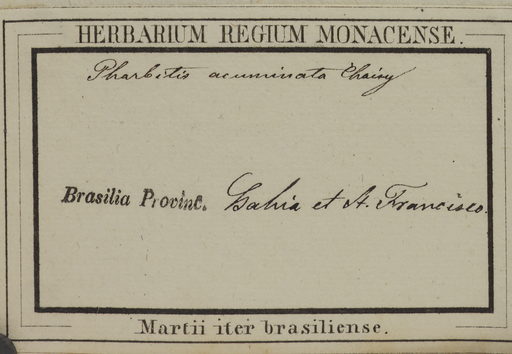 HERBARIUM REGIUM MONACENSE.
Pharbitis acuminata Choisy
Brasilia Provinc. Bahia et S. Francisco.
Martii iter brasiliense.